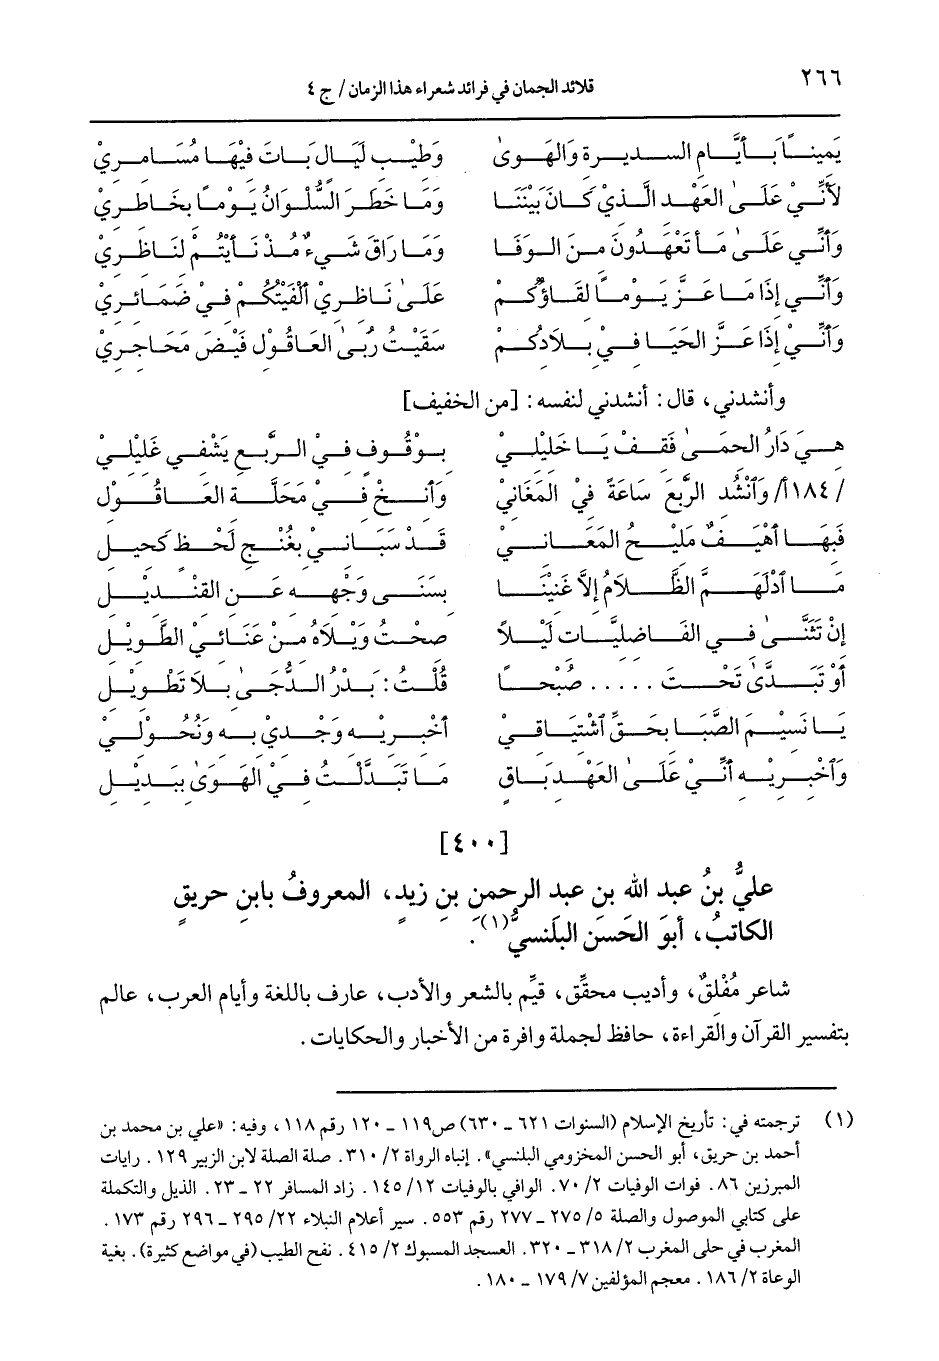 ٢٦٦
قلائد الجمان في فرائد شعراء هذا الزمان/ ج ٤
يَميناً بأيَّام السديرة وَالهَوىٰ وَطيْب لَيَالٍ بَات فيْهَا مُسَامريْ
لأنّيْ عَلَىٰ العَهْد الَّذيْ كَانَ بَيْنَنَا وَمَا خَطَرَ السُّلْوَانُ يَوْماً بخَاطريْ
وَأنّي عَلَىٰ مَا تَعْهَدُونَ منَ الوَفَا وَمَا رَاقَ شَيءٌ مُذْ نَأيْتُمْ لنَاظريْ
وَأنّي إذَا مَا عَزَّ يَوْماً لقَاؤكُمْ عَلَىٰ نَاظريْ ألْفَيْتُكُمْ فيْ ضَمَائريْ
وَأنّيْ إذَا عَزَّ الحَيَا فيْ بلَادكُمْ سَقَيْتُ رُبَىٰ العَاقُول فَيْضَ مَحَاجري
وأنشدني، قال: أنشدني لنفسه: [من الخفيف]
هيَ دَارُ الحمَىٰ فَقفْ يَا خَليْليْ بوُقُوف فيْ الرَّبع يَشْفي غَليْليْ
/١٨٤أ/ وَٱنْشُد الرَّبْعَ سَاعَةً فيْ المَغَانيْ وَأنخْ فيْ مَحَلَّة العَاقُول
فَبهَا أهْيَفٌ مَليْحُ المَعَانيْ قَدْ سَبَانيْ بغُنْج لَحْظ كَحيل
مَا ٱدْلَهَمَّ الظَّلَامُ إلاَّ غَنيْنَا بسَنَى وَجْهه عَن القنْديْل
إنْ تَثَنَّىٰ في الفَاضليَّات لَيْلاً صحْتُ وَيْلَاهُ منْ عَنَائيْ الطَّويْل
أوْ تَبَدَّىٰ تَحْتَ ..... صُبْحاً قُلْتُ: بَدْرُ الدُّجَىٰ بلَا تَطْويْل
يَا نَسيْمَ الصَّبَا بحَقِّ ٱشْتيَاقيْ أخْبريْه وَجْديْ به وَنُحُوْليْ
وَٱخْبريْه أنّيْ عَلَىٰ العَهْد بَاق مَا تَبَدَّلْتُ فيْ الهَوَىٰ ببَديْل
[٤٠٠]
عليُّ بنُ عبد الله بن عبد الرحمن بن زيدٍ، المعروفُ بابنِ حريقٍ
الكاتبُ، أبوَ الحَسَن البلَنسيُّ(١).
شاعر مُفْلقٌ، وأديب محقِّق، قيِّم بالشعر والأدب، عارف باللغة وأيام العرب، عالم
بتفسير القرآن والقراءة، حافظ لجملة وافرة من الأخبار والحكايات.
(١) ترجمته في: تأريخ الإسلام (السنوات ٦٢١ ـ ٦٣٠) ص١١٩ ـ ١٢٠ رقم ١١٨، وفيه: «علي بن محمد بن
أحمد بن حريق، أبو الحسن المخزومي البلنسي». إنباه الرواة ٢/ ٣١٠. صلة الصلة لابن الزبير ١٢٩. رايات
المبرزين ٨٦. فوات الوفيات ٢/ ٧٠. الوافي بالوفيات ١٢/ ١٤٥. زاد المسافر ٢٢ ـ ٢٣. الذيل والتكملة
على كتابي الموصول والصلة ٥/ ٢٧٥ ـ ٢٧٧ رقم ٥٥٣. سير أعلام النبلاء ٢٢/ ٢٩٥ ـ ٢٩٦ رقم ١٧٣.
المغرب في حلى المغرب ٢/ ٣١٨ ـ ٣٢٠. العسجد المسبوك ٢/ ٤١٥. نفح الطيب (في مواضع كثيرة). بغية
الوعاة ٢/ ١٨٦. معجم المؤلفين ٧/ ١٧٩ ـ ١٨٠.